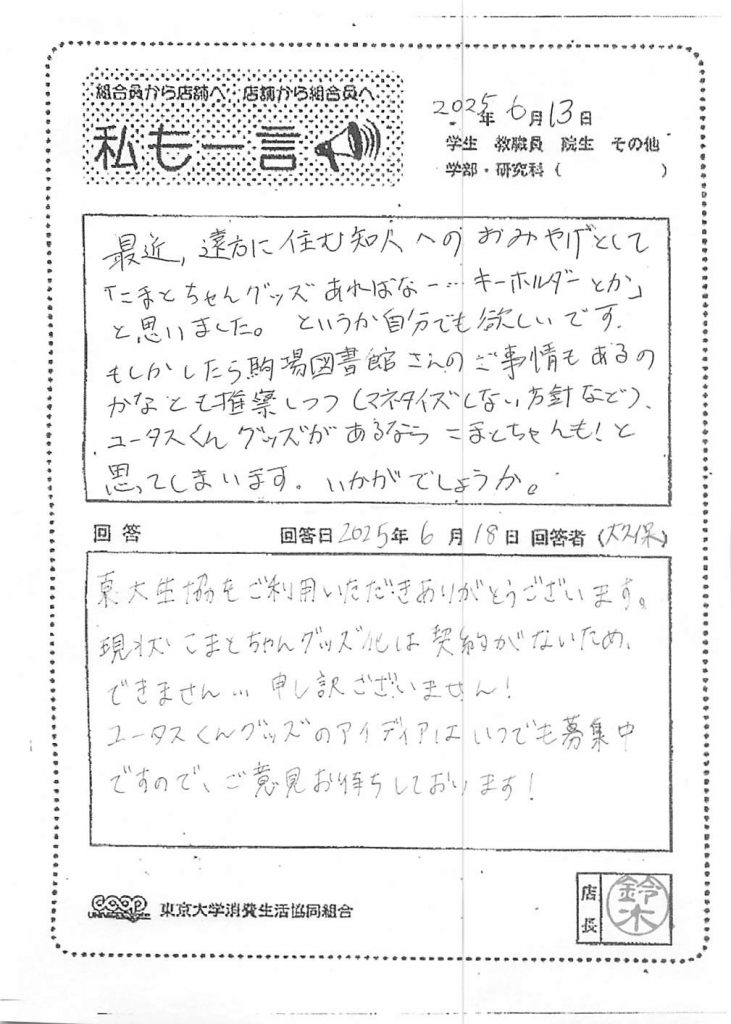 組合員から店舗へ 店舗から組合員へ
私も一言
2025年 6月13日
学生 教職員 院生 その他
学部・研究科( )
最近, 遠方に住む知人へのおみやげとして
「こまとちゃんグッズあればなー… キーホルダーとか」
と思いました。というか自分でも欲しいです.
もしかしたら駒場図書館さんのご事情もあるの
かなとも推察しつつ(マネタイズしない方針など)、
ユータスくんグッズがあるなら こまとちゃんも!と
思ってしまいます. いかがでしょうか。
回答 回答日 2025年 6月 18日 回答者 (大久保)
東大生協をご利用いただきありがとうございます。
現状 こまとちゃんグッズ化は契約がないため、
できません… 申し訳ございません!
ユータスくんグッズのアイディアは いつでも募集中
ですので、ご意見お待ちしております!
coop 東京大学消費生活協同組合
UNIVERSITY
店長 鈴木